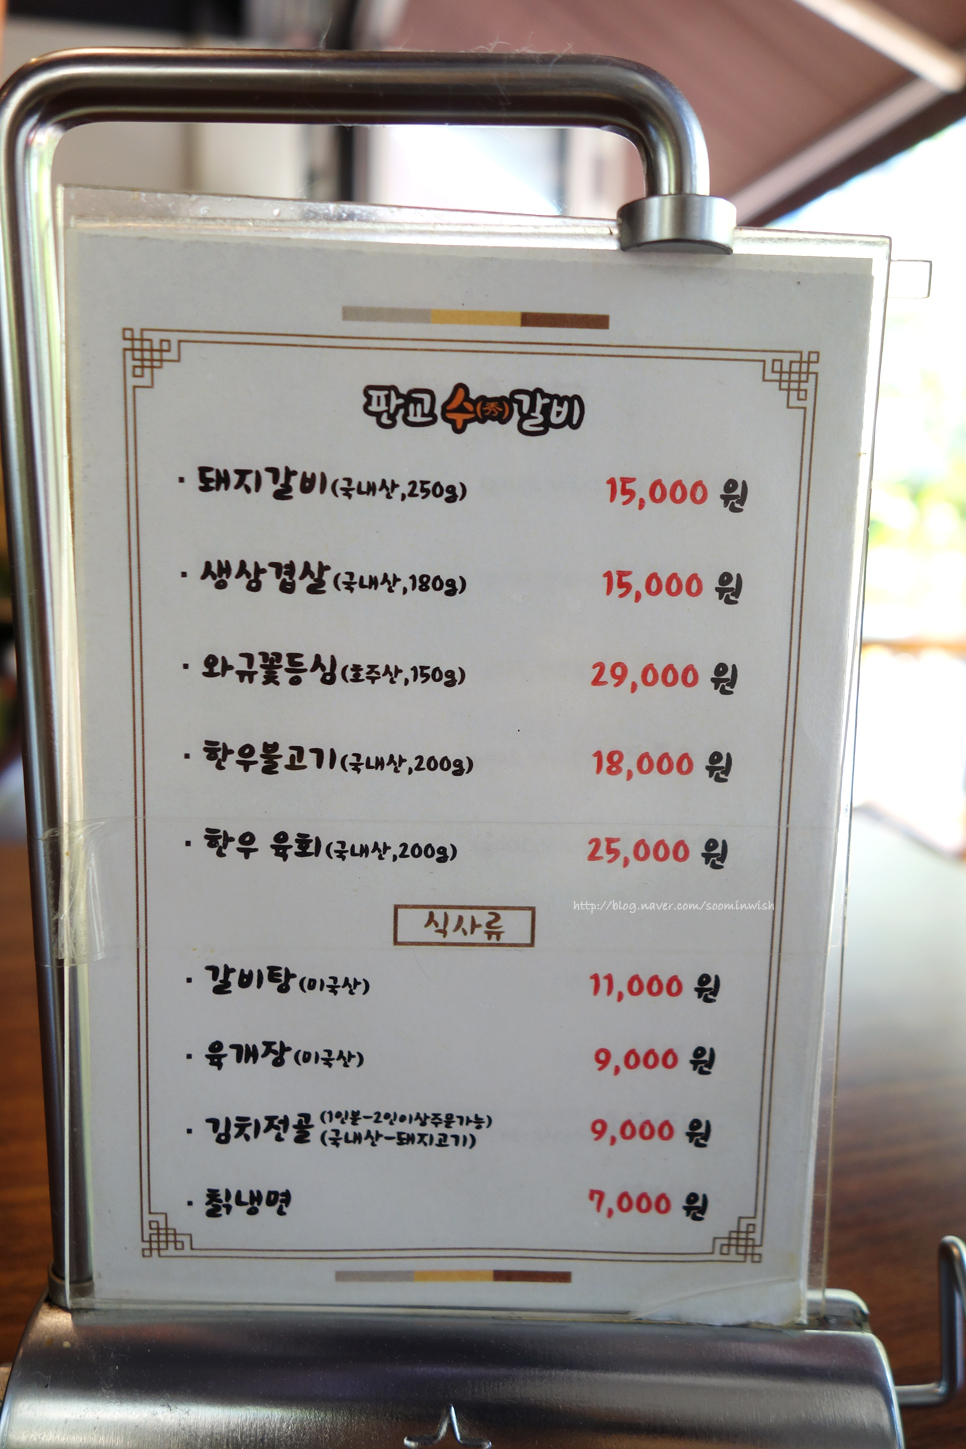 판교 수(秀)갈비
· 돼지갈비(국내산,250g) 15,000 원
· 생삼겹살(국내산,180g) 15,000 원
· 와규꽃등심(호주산,150g) 29,000 원
· 한우불고기(국내산,200g) 18,000 원
· 한우 육회(국내산,200g) 25,000 원
http://blog.naver.com/soominwish
식사류
· 갈비탕(미국산) 11,000 원
· 육개장(미국산) 9,000 원
· 김치전골 (1인분-2인이상주문가능) 9,000 원
(국내산-돼지고기)
· 칡냉면 7,000 원